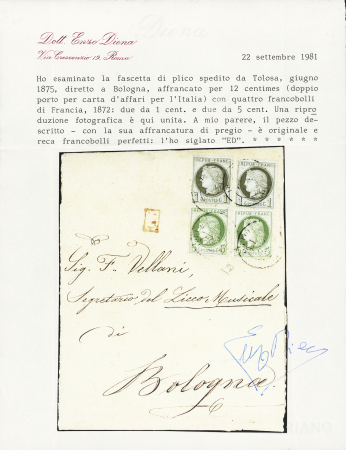 Dott. Enzo Diena
Via Crescenzio 19, Roma
22 settembre 1981
Ho esaminato la fascetta di plico spedito da Tolosa, giugno
1875, diretto a Bologna, affrancato per 12 centimes (doppio
porto per carta d'affari per l'Italia) con quattro francobolli
di Francia, 1872: due da 1 cent. e due da 5 cent. Una ripro
duzione fotografica è qui unita. A mio parere, il pezzo de-
scritto - con la sua affrancatura di pregio - è originale e
reca francobolli perfetti: l'ho siglato "ED". * * * * * *
REPUB. FRANC. REPUB. FRANC.
REPUB. FRANC. REPUB. FRANC.
Sig. F. Vellani,
Segretario del Liceo Musicale
di
Bologna